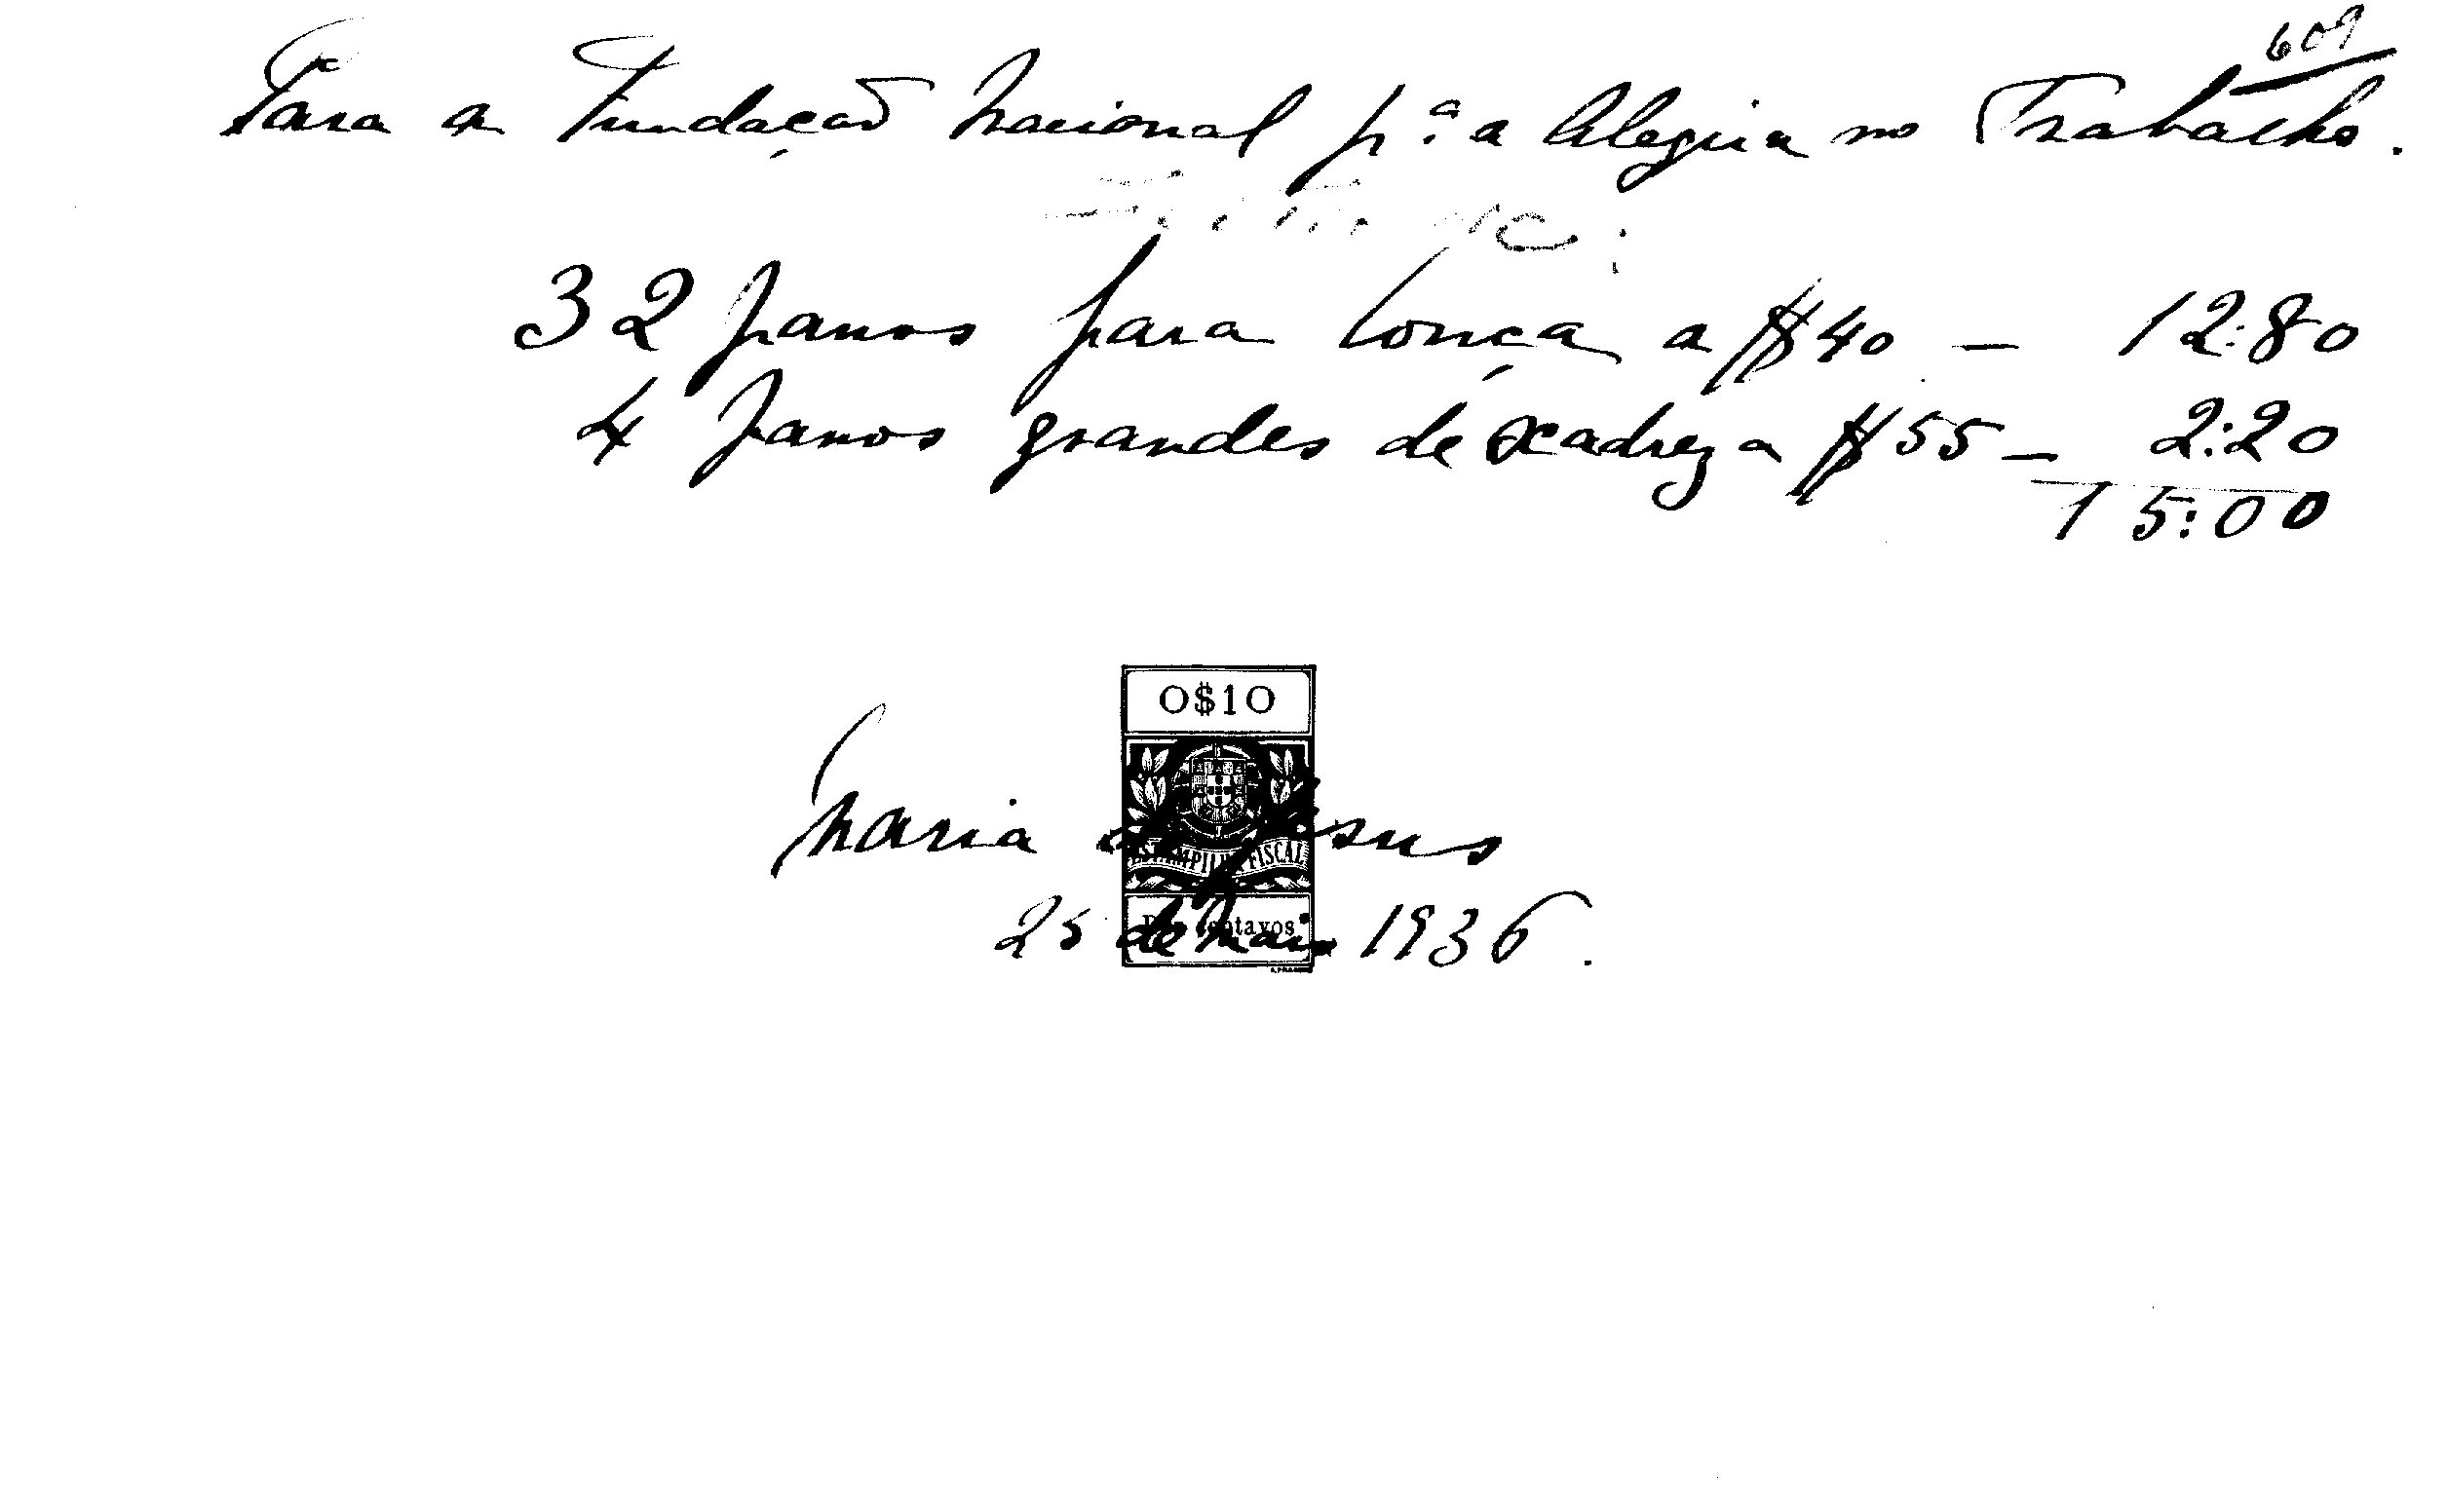 609
Para a Fundação Nacional p.ª a Alegria no Trabalho.
32 panos para louça a $40 — 12:80
4 panos grandes de xadrez a $55 — 2:20
15:00
0$10
Maria de Jesus
ESTAMPILHA FISCAL
25 de Maio 1936.
centavos